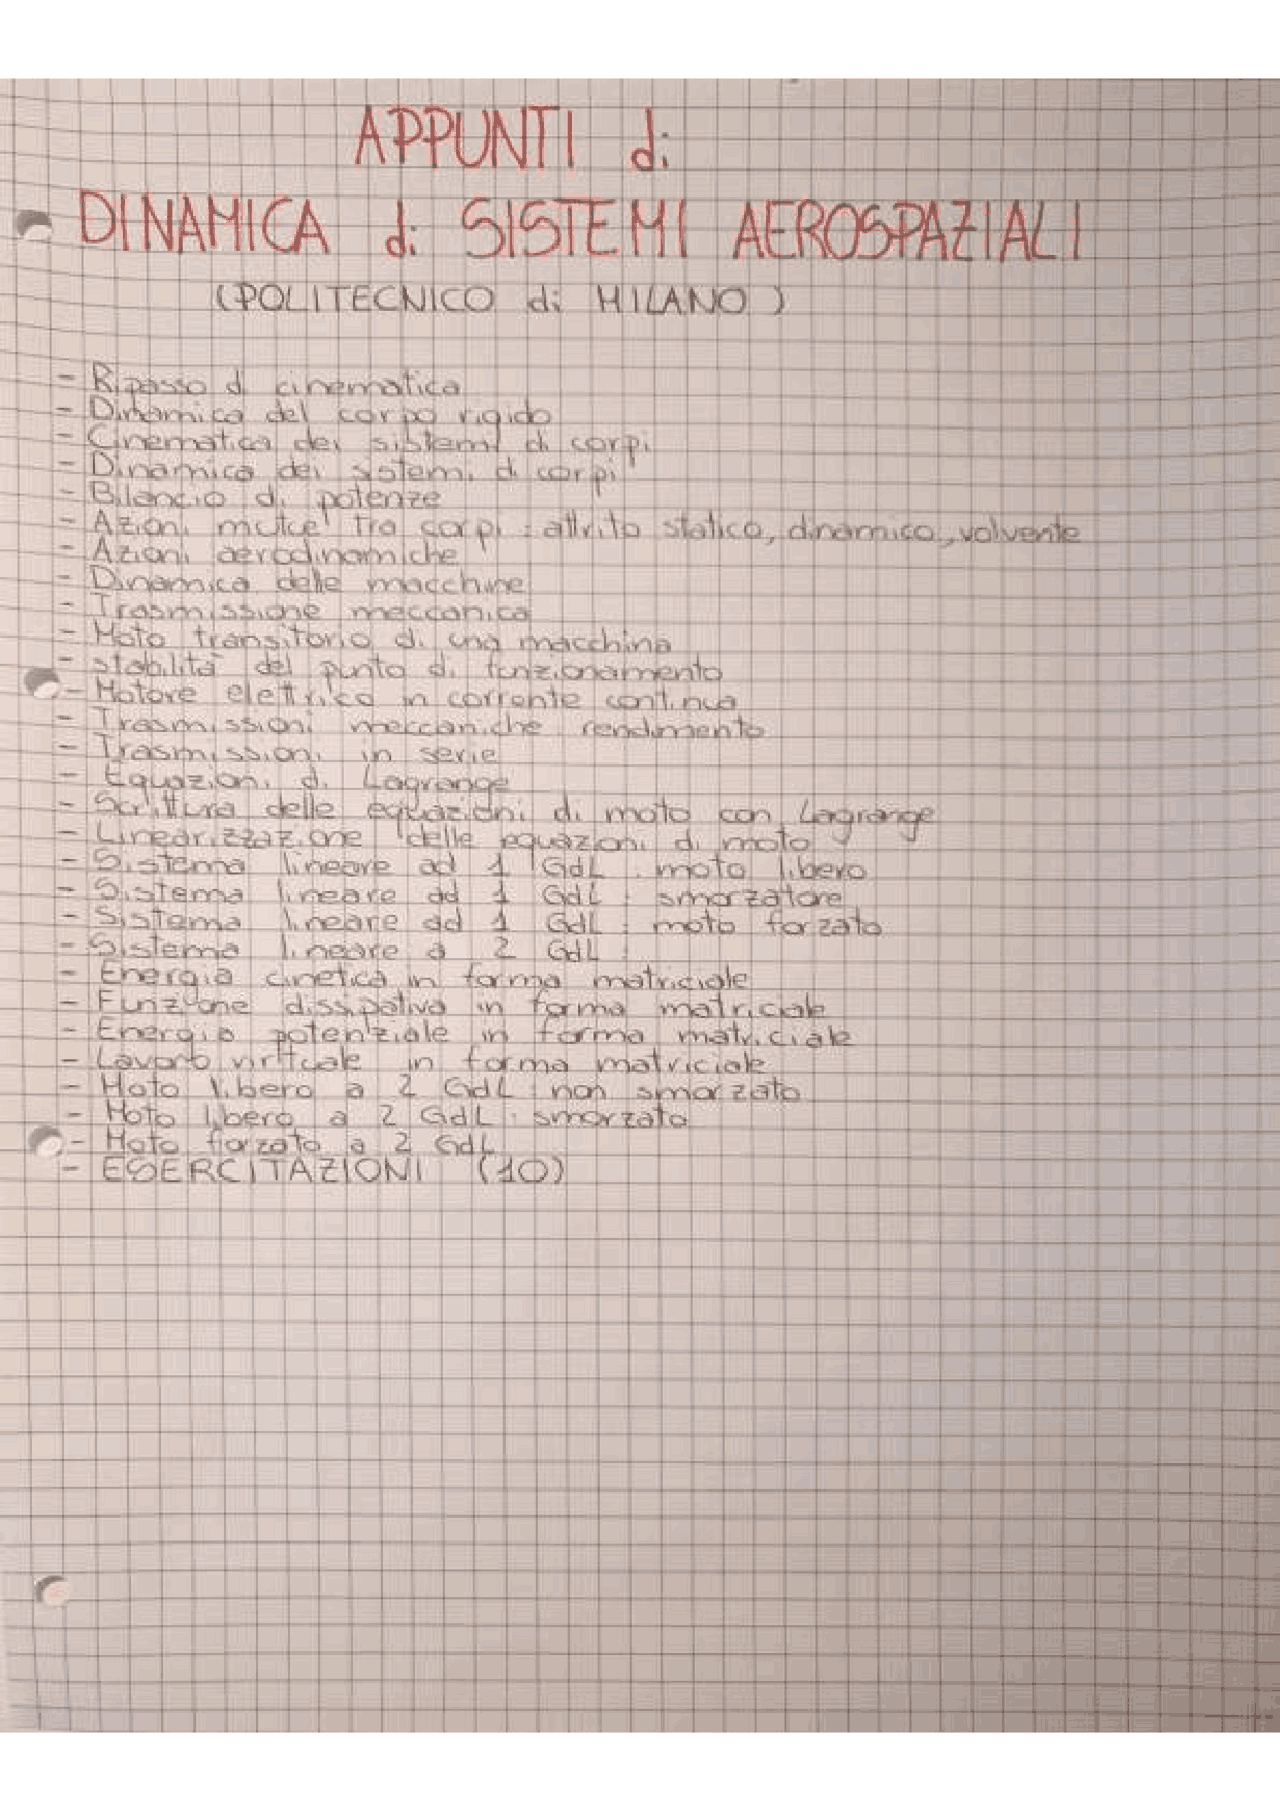 APPUNTI di
DINAMICA di SISTEMI AEROSPAZIALI
(POLITECNICO di MILANO)
- Ripasso di cinematica
- Dinamica del corpo rigido
- Cinematica dei sistemi di corpi
- Dinamica dei sistemi di corpi
- Bilancio di potenze
- Azioni mutue tra corpi: attrito statico, dinamico, volvente
- Azioni aerodinamiche
- Dinamica delle macchine
- Trasmissione meccanica
- Moto transitorio di una macchina
- stabilità del punto di funzionamento
- Motore elettrico in corrente continua
- Trasmissioni meccaniche: rendimento
- Trasmissioni in serie
- Equazioni di Lagrange
- Scrittura delle equazioni di moto con Lagrange
- Linearizzazione delle equazioni di moto
- Sistema lineare ad 1 GdL: moto libero
- Sistema lineare ad 1 GdL: smorzatore
- Sistema lineare ad 1 GdL: moto forzato
- Sistema lineare a 2 GdL:
- Energia cinetica in forma matriciale
- Funzione dissipativa in forma matriciale
- Energia potenziale in forma matriciale
- Lavoro virtuale in forma matriciale
- Moto libero a 2 GdL: non smorzato
- Moto libero a 2 GdL: smorzato
- Moto forzato a 2 GdL
- ESERCITAZIONI (10)